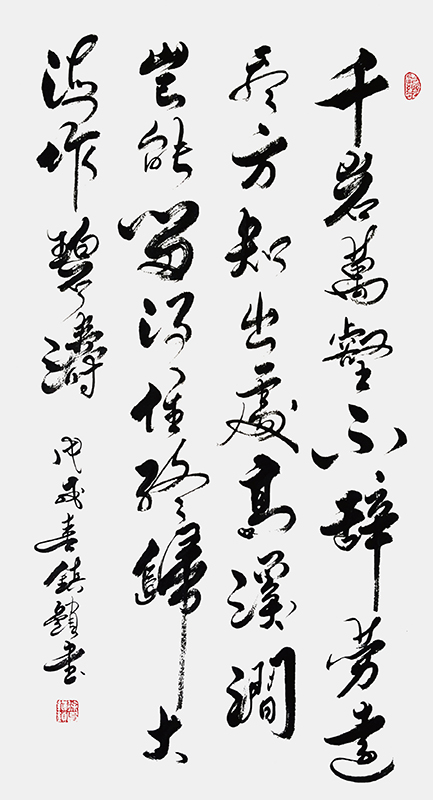 千岩萬壑不辞劳遠
看方知出處高溪澗
豈能留得住終歸大
海作碧濤
戊戌鎮書